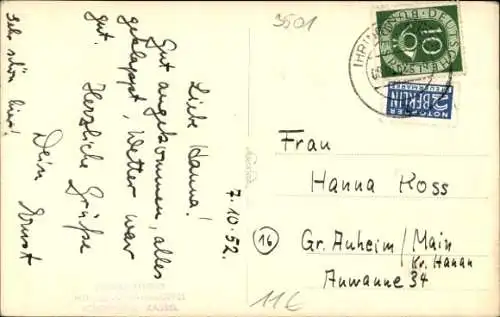 7.10.52.
Liebe Hanna!
Gut angekommen, alles
geklappt, Wetter war
gut. Herzliche Grüße
Dein Ernst
Sehr schön hier!
3501
10
DEUTSCHE BUNDESPOST
NOTOPFER
2 BERLIN
STEUERMARKE
IHRIN
Frau
Hanna Koss
Gr. Auheim/Main
Kr. Hanau
Anwanne 34
16
11€